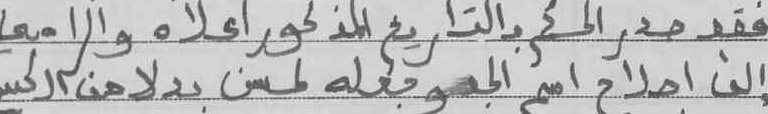 فقد صدر الحكم بالتاريخ المذكور اعلاه والرامي
الى اصلاح اسم الجد وجعله لحسن بدلا من الحسن